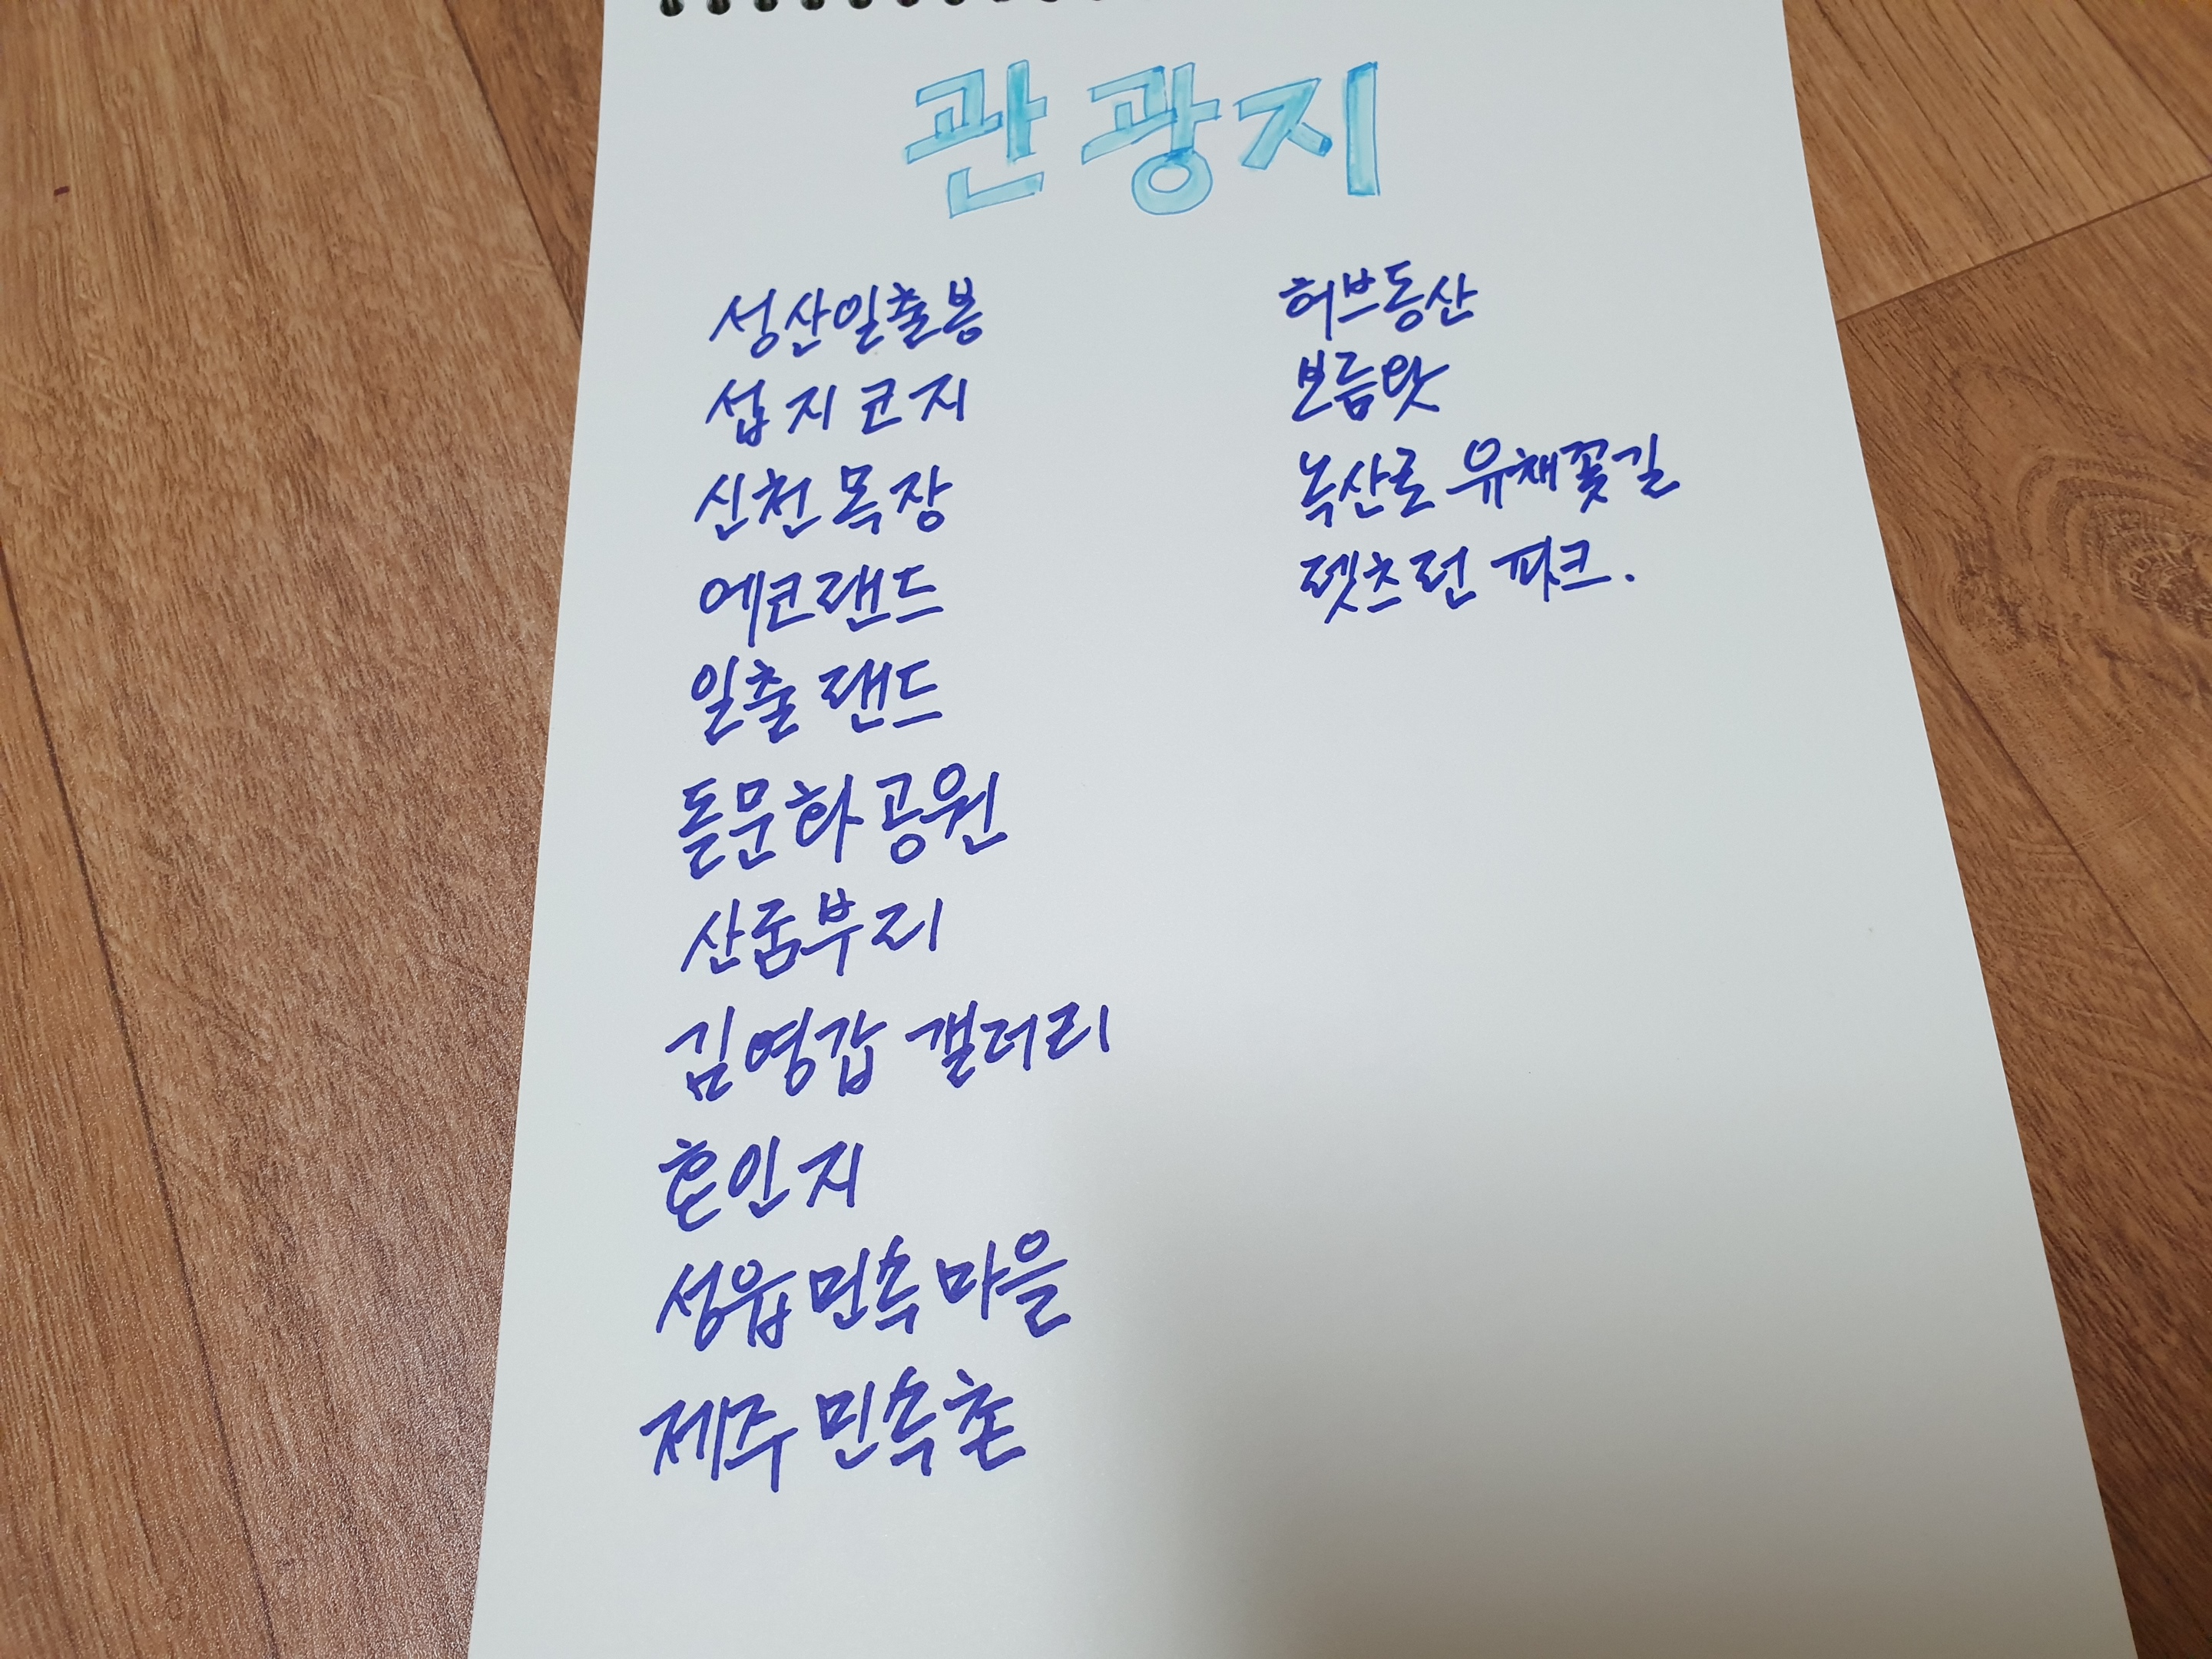 관광지
성산일출봉
섭지코지
신천목장
에코랜드
일출랜드
돌문화공원
산굼부리
김영갑 갤러리
혼인지
성읍민속마을
제주민속촌
허브동산
보름왓
녹산로 유채꽃길
렛츠런 파크.